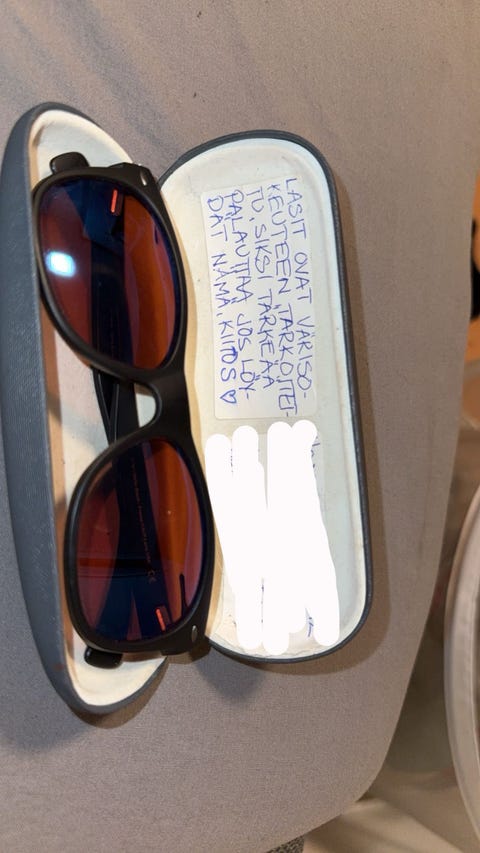 LASIT OVAT VÄRISO-
KEUTEEN TARKOITET-
TU, SIKSI TÄRKEÄÄ
PALAUTTAA JOS LÖY-
DÄT NÄMÄ, KIITOS ♡
CE